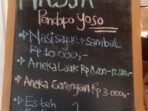 Pendopo Yoso
Nasi sayur + sambal
Rp 10.000,-
Aneka Lauk Rp 8.000-12.000,-
Aneka Gorengan Rp 3.000,-
Es teh